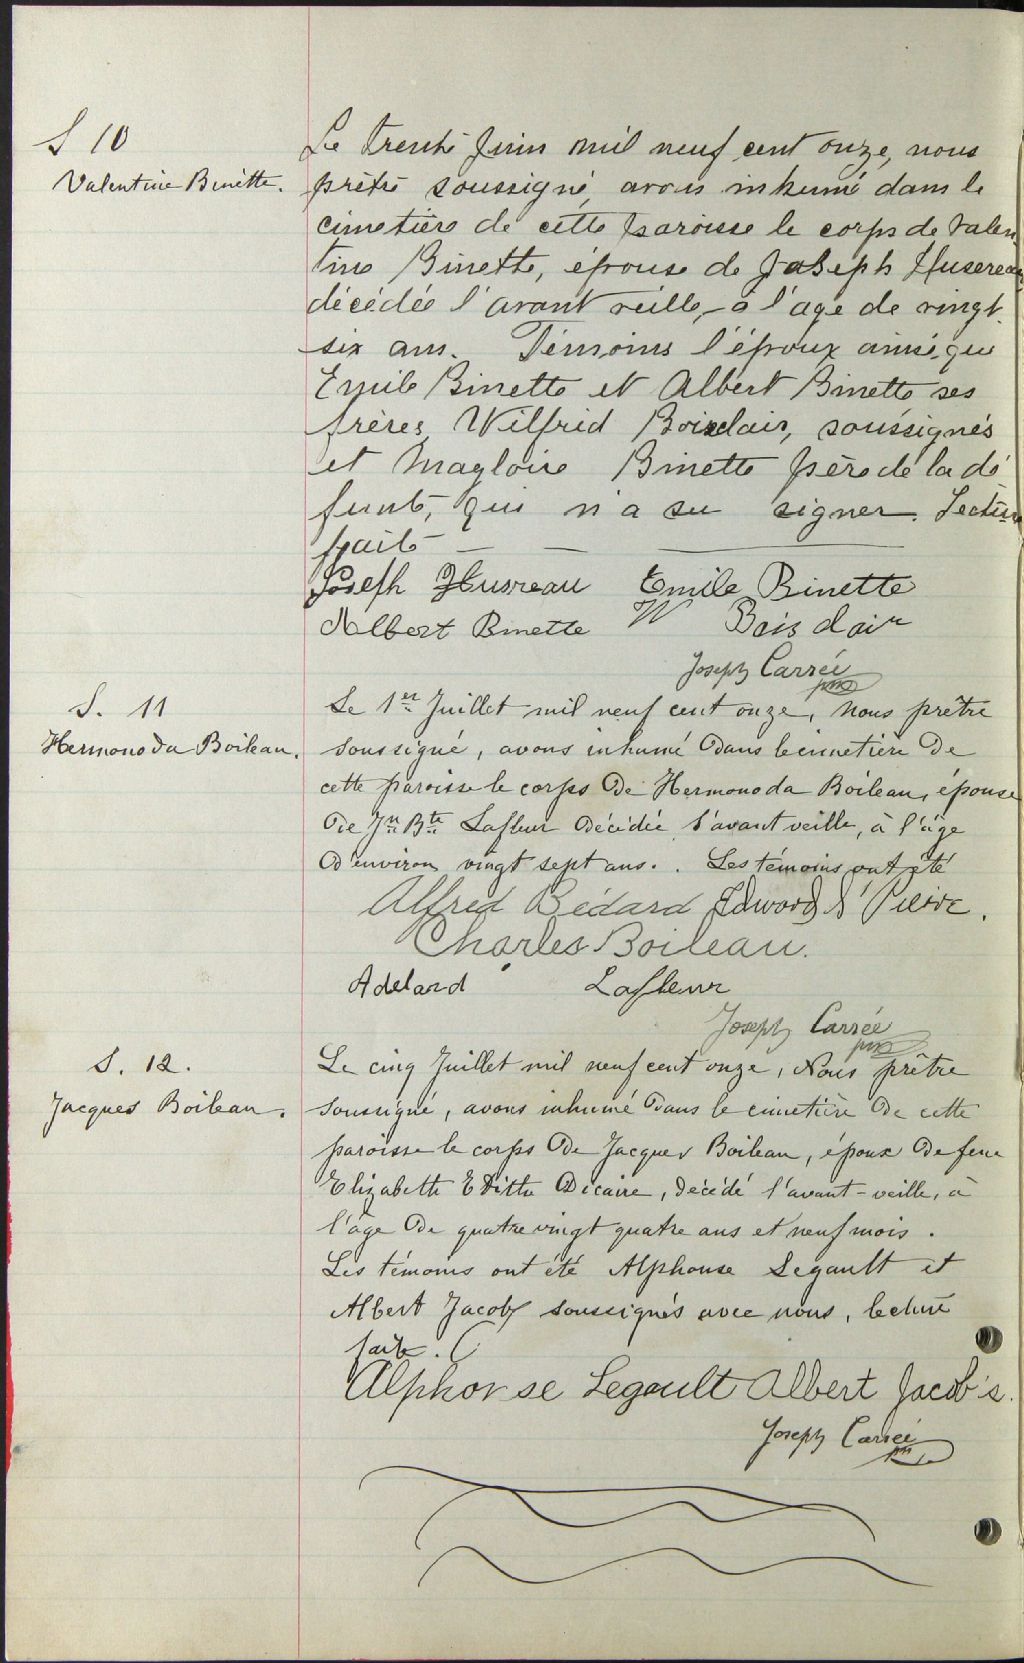 S 10
Valentine Binette.
Le trente Juin mil neuf cent onze, nous
prêtre soussigné, avons inhumé dans le
cimetière de cette paroisse le corps de Valen
tine Binette, épouse de Joseph Husereau,
décédée l'avant veille, à l'age de vingt
six ans. Témoins l'époux ainsi que
Emile Binette et Albert Binette ses
frères, Wilfrid Boisclair, soussignés
et Magloire Binette père de la dé
funte, qui n'a su signer. Lecture
faite
Joseph Husreau Emile Binette
Albert Binette W Boisclair
Joseph Carrée
ptre
S. 11
Hermonoda Boileau.
Le 1er Juillet mil neuf cent onze, Nous prêtre
soussigné, avons inhumé dans le cimetière de
cette paroisse le corps de Hermonoda Boileau, épouse
de Jn Bte Lafleur décédée l'avant veille, à l'âge
d'environ vingt sept ans. . Les témoins ont été
Alfred Bédard Edward St Pierre.
Charles Boileau.
Adelard Lafleur
Joseph Carrée
ptre
S. 12.
Jacques Boileau.
Le cinq Juillet mil neuf cent onze, Nous prêtre
soussigné, avons inhumé dans le cimetière de cette
paroisse le corps de Jacques Boileau, époux de feue
Elizabeth Edithe Décaire, décédé l'avant-veille, à
l'âge de quatre vingt quatre ans et neuf mois.
Les témoins ont été Alphonse Legault et
Albert Jacobs soussignés avec nous, lecture
faite.
Alphonse Legault Albert Jacob's.
Joseph Carrée
ptre